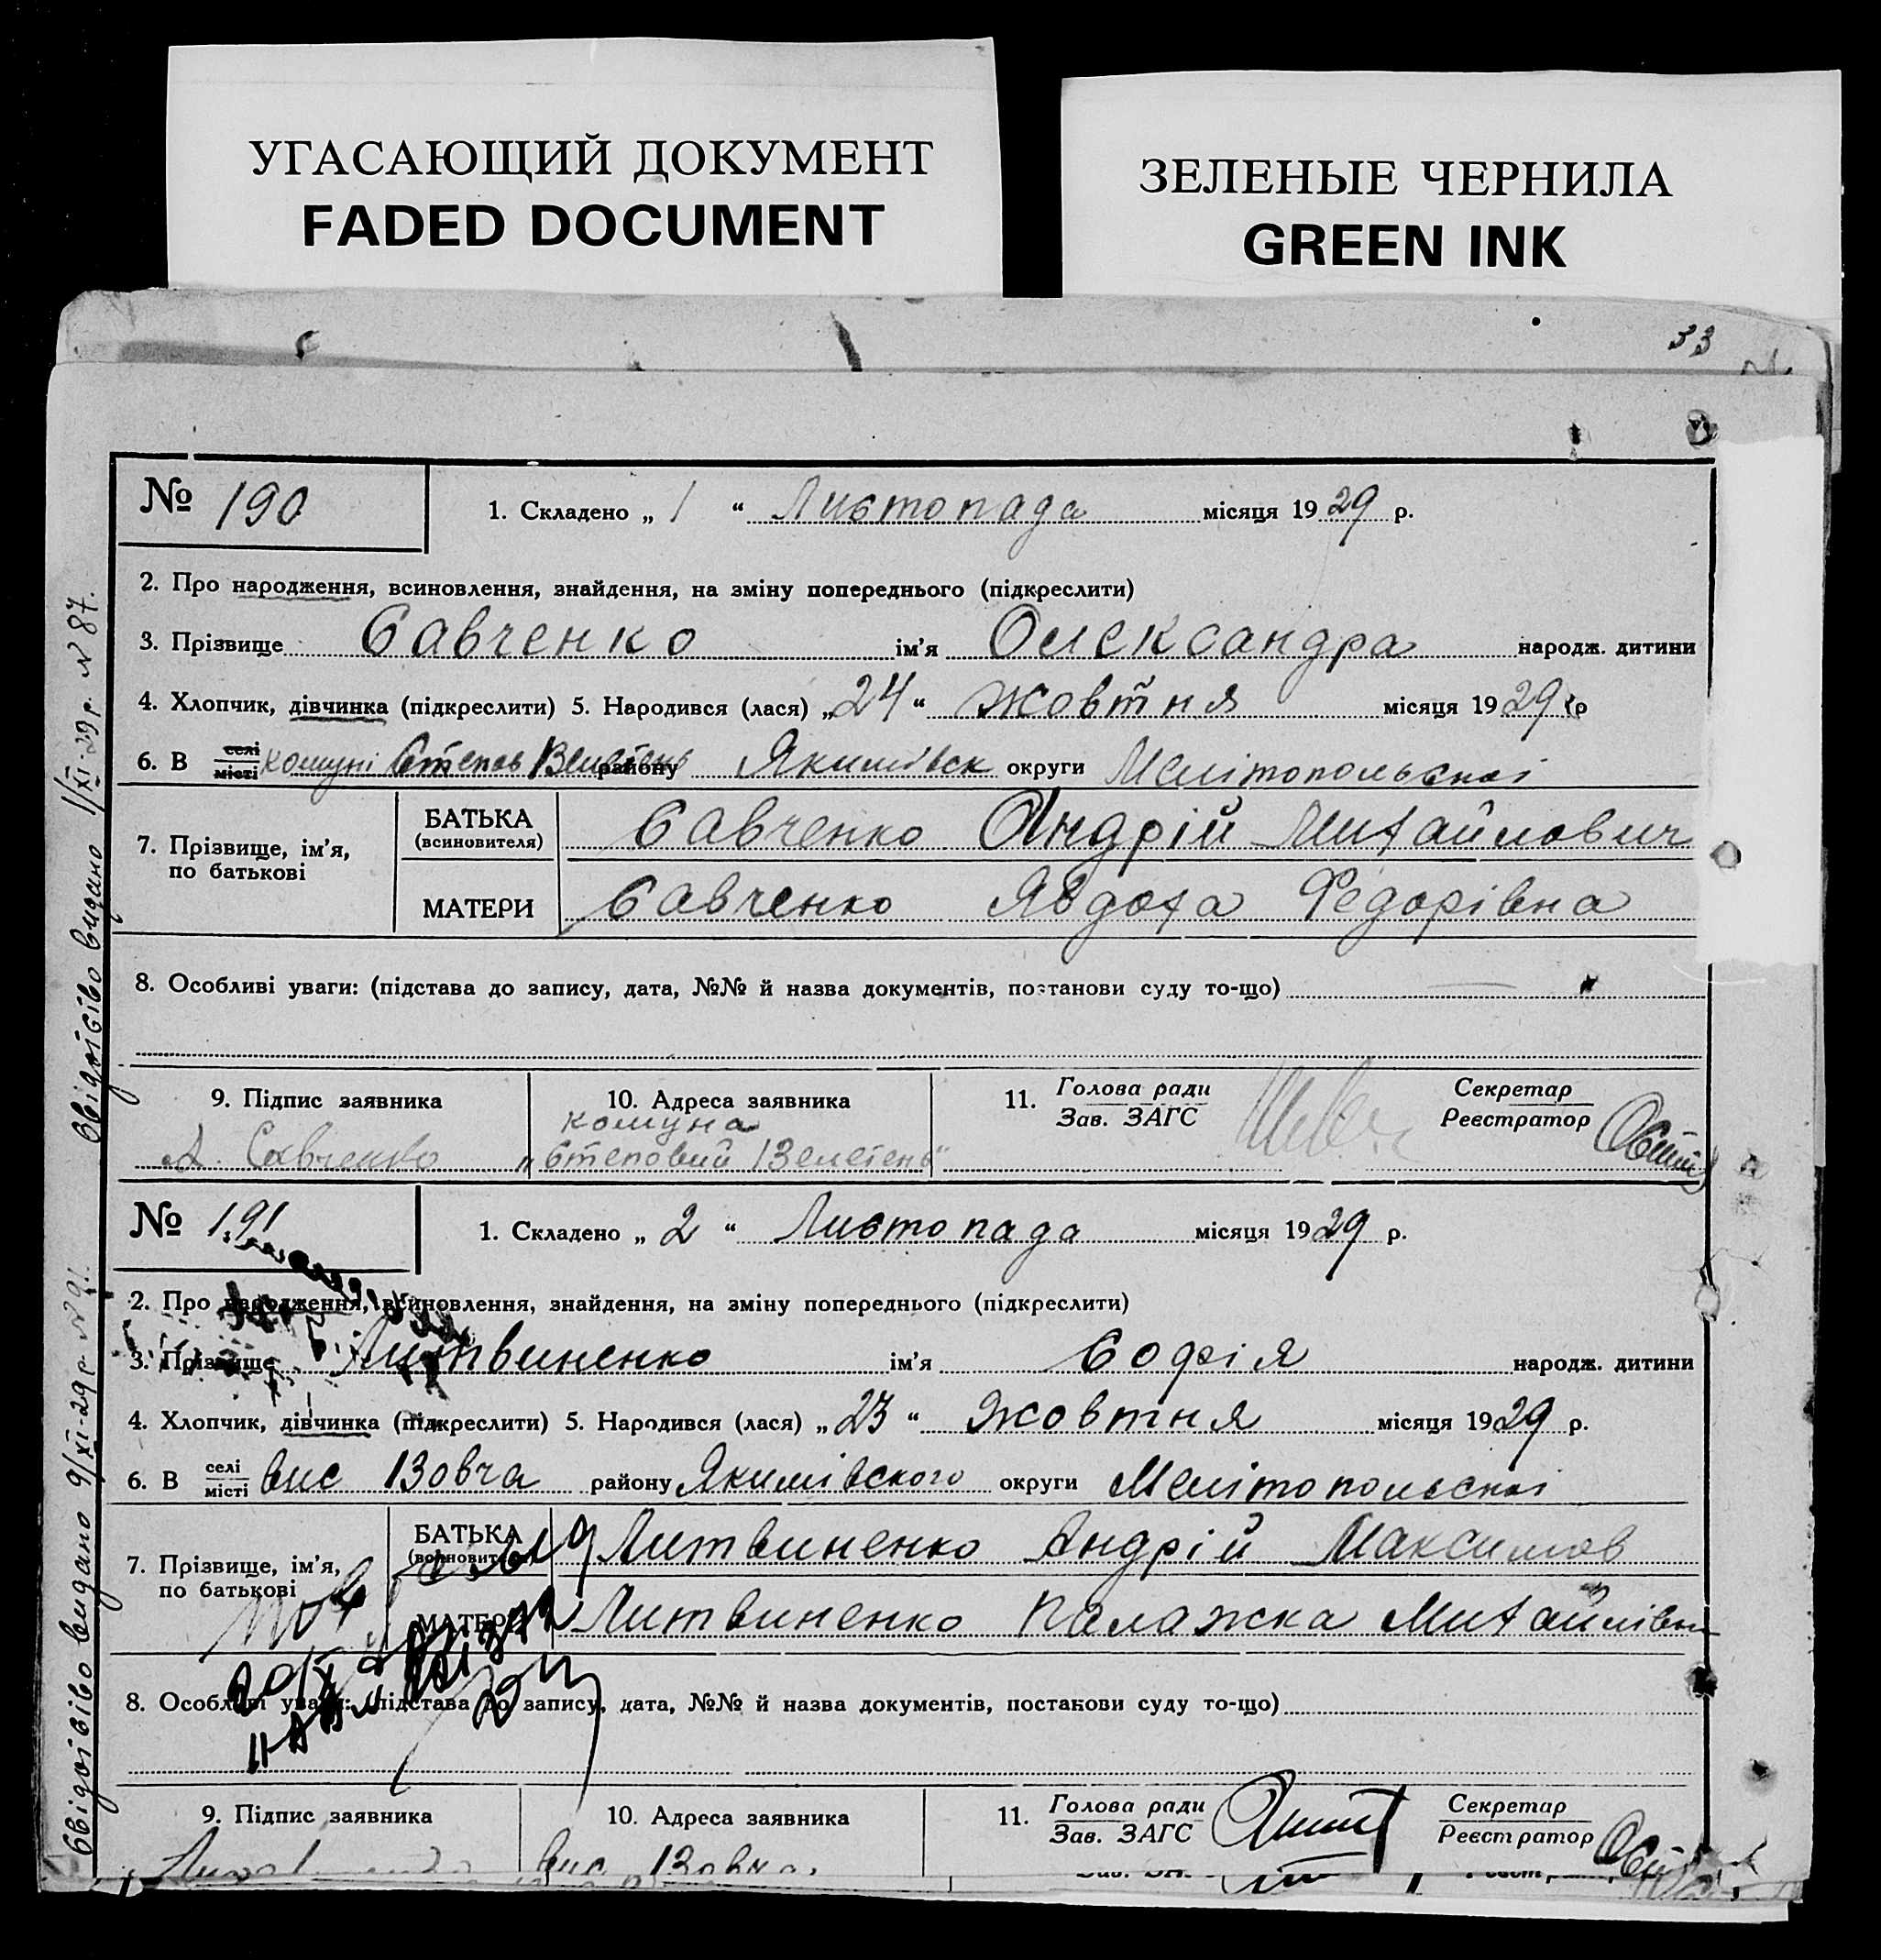 УГАСАЮЩИЙ ДОКУМЕНТ
FADED DOCUMENT
ЗЕЛЕНЫЕ ЧЕРНИЛА
GREEN INK
33
№ 190
1. Складено „ 1 “ Листопада місяця 1929 р.
2. Про народження, всиновлення, знайдення, на зміну попереднього (підкреслити)
3. Прізвище Савченко ім'я Олександра народж. дитини
4. Хлопчик, дівчинка (підкреслити) 5. Народився (лася) „ 24 “ жовтня місяця 1929 р
6. В селі місті комуні Степов району Якимівск округи Мелітопольскої
7. Прізвище, ім'я, по батькові
БАТЬКА (всиновителя) Савченко Андрій Михайлович
МАТЕРИ Савченко Явдоха Федорівна
8. Особливі уваги: (підстава до запису, дата, №№ й назва документів, постанови суду то-що)
9. Підпис заявника
А. Савченко
10. Адреса заявника
комуна
„Степовий
11. Голова ради
Зав. ЗАГС
Секретар
Реєстратор
Свідоство видано 1/XI-29 р. N 87.
№ 191
1. Складено „ 2 “ Листопада місяця 1929 р.
2. Про народження, всиновлення, знайдення, на зміну попереднього (підкреслити)
3. Прізвище Литвиненко ім'я Софія народж. дитини
4. Хлопчик, дівчинка (підкреслити) 5. Народився (лася) „ 23 “ жовтня місяця 1929 р.
6. В селі місті вис Вовча району Якимівского округи Мелітопольскої
7. Прізвище, ім'я, по батькові
БАТЬКА (всиновителя) Литвиненко Андрій Максимов
МАТЕРИ Литвиненко Палажка Михайлівн
8. Особливі уваги: (підстава до запису, дата, №№ й назва документів, постанови суду то-що)
9. Підпис заявника
10. Адреса заявника
вис Вовча.
11. Голова ради
Зав. ЗАГС
Секретар
Реєстратор
Свідоство видано 9/XI-29 р. N 91.